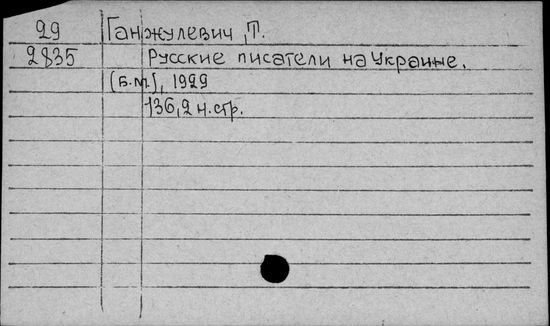 29 Ганжулевич, Т.
2835 Русские писатели на Украине.
[Б.м.], 1929
136, 2 н. стр.